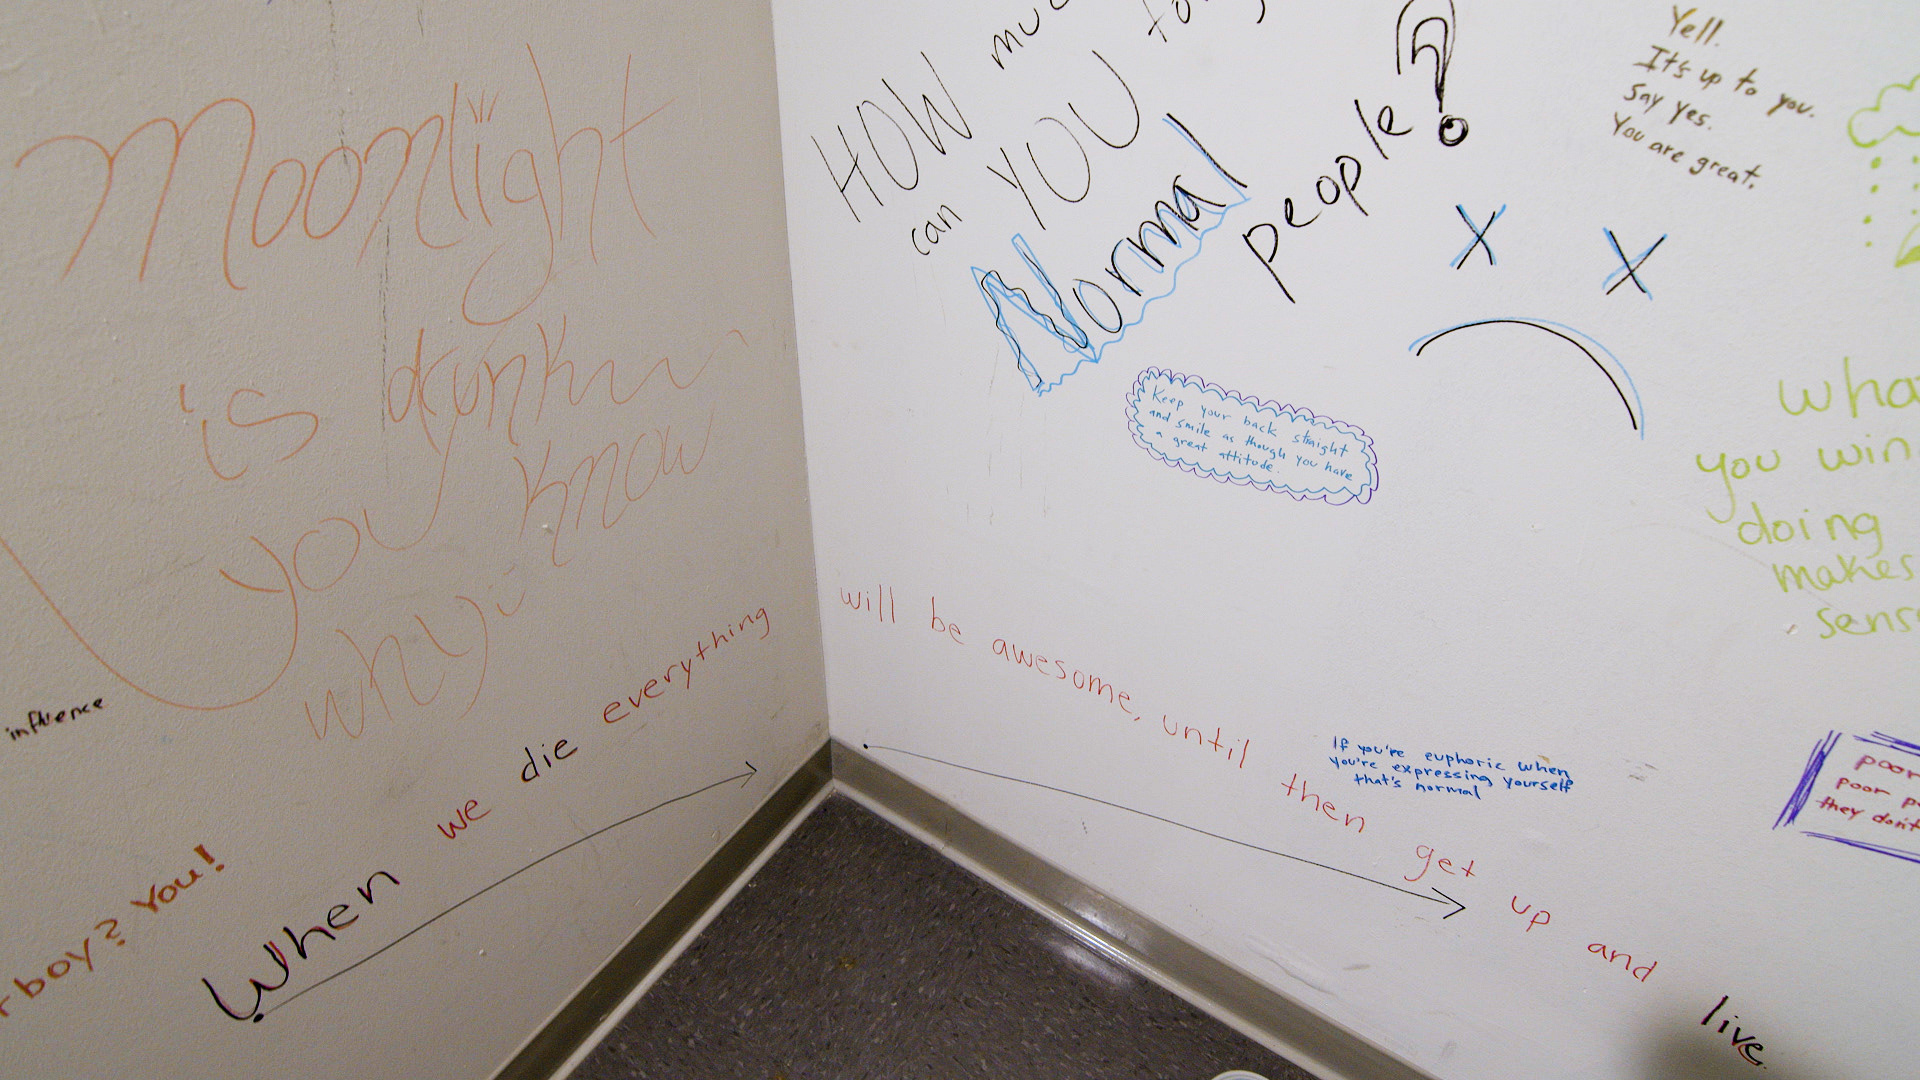 Moonlight
is drunk
you know
why
influence
boy? You!
When we die everything will be awesome, until then get up and live
HOW
can YOU
Normal
people?
Keep your back straight
and smile as though you have
a great attitude.
Yell.
It's up to you.
Say yes.
You are great.
you
doing
makes
If you're euphoric when
you're expressing yourself
that's normal
poor
poor
they don't